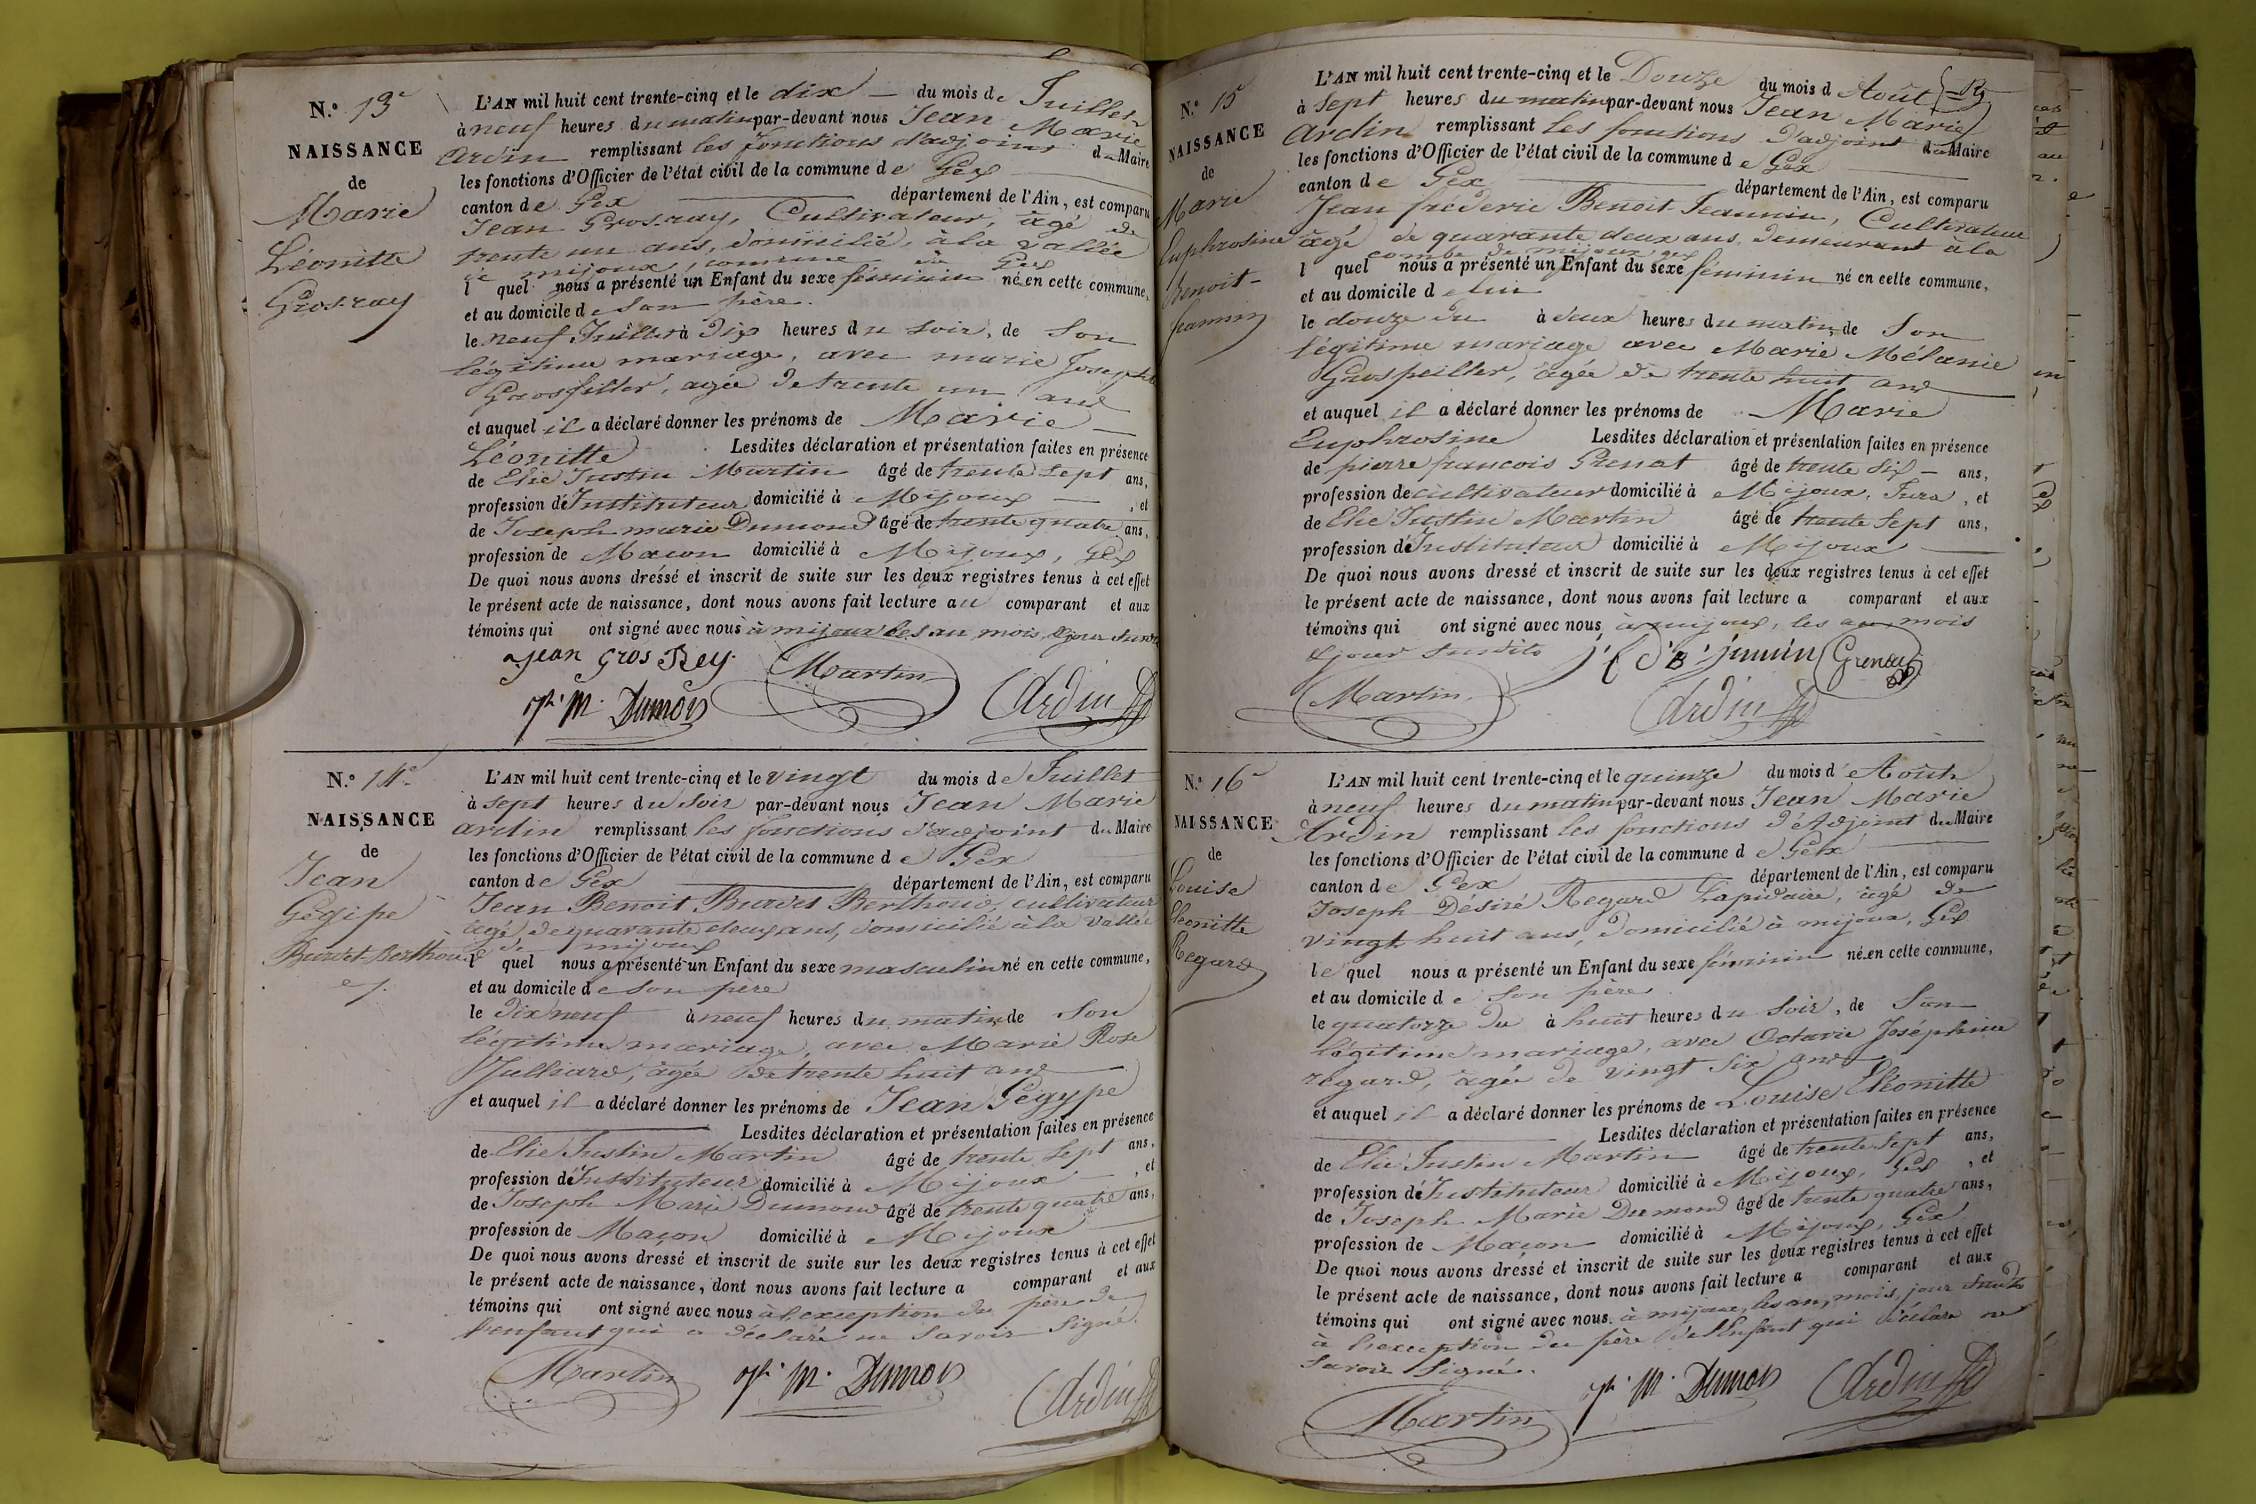 N.º 13e
NAISSANCE
de
Marie
Léonitte
Grosray
L'AN mil huit cent trente-cinq et le dix du mois de Juillet
à neuf heures du matin par-devant nous Jean Marie
Ardin remplissant les fonctions d'adjoint du Maire
les fonctions d'Officier de l'état civil de la commune de Gex
canton de Gex département de l'Ain, est comparu
Jean Grosray, Cultivateur, âgé de
trente un ans, domicilié, à la vallée
de mijoux, commune de Gex
lequel nous a présenté un Enfant du sexe féminin né en cette commune,
et au domicile de son père.
le neuf Juillet à dix heures du soir, de son
légitime mariage, avec marie Josephte
Grosfiller, agée de trente un ans
et auquel il a déclaré donner les prénoms de Marie
Léonitte Lesdites déclaration et présentation faites en présence
de Elie Justin Martin âgé de trente sept ans,
profession de Instituteur domicilié à Mijoux, et
de Joseph marie Dumond âgé de trente quatre ans,
profession de Macon domicilié à Mijoux, Gex
De quoi nous avons dréssé et inscrit de suite sur les deux registres tenus à cet effet
le présent acte de naissance, dont nous avons fait lecture au comparant et aux
témoins qui ont signé avec nous à mijoux les an mois & jour susdits
jean gros Rey. Martin
jh. M. Dumon Ardin
N.º 14e
NAISSANCE
de
Jean
Gégipe
Burdet-Berthoud
L'AN mil huit cent trente-cinq et le vingt du mois de Juillet
à sept heures du soir par-devant nous Jean Marie
ardin remplissant les fonctions d'adjoint du Maire
les fonctions d'Officier de l'état civil de la commune de Gex
canton de Gex département de l'Ain, est comparu
Jean Benoit Burdet Berthoud, cultivateur
âgé de quarante deux ans, domicilié à la vallée
de mijoux
lequel nous a présenté un Enfant du sexe masculin né en cette commune,
et au domicile de son père
le dix neuf à neuf heures du matin de son
légitime mariage, avec Marie Rose
Julliard, âgée de trente huit ans
et auquel il a déclaré donner les prénoms de Jean Gégype
Lesdites déclaration et présentation faites en présence
de Elie Justin Martin âgé de trente sept ans,
profession de Instituteur domicilié à Mijoux, et
de Joseph Marie Dumond âgé de trente quatre ans,
profession de Maçon domicilié à Mijoux
De quoi nous avons dressé et inscrit de suite sur les deux registres tenus à cet effet
le présent acte de naissance, dont nous avons fait lecture a comparant et aux
témoins qui ont signé avec nous à l'exception du père de
l'enfant qui a déclaré ne savoir signé.
Martin jh. M. Dumon Ardin
N.º 15e
NAISSANCE
de
Marie
Euphrosine
Benoit-
Jeannin
L'AN mil huit cent trente-cinq et le Douze du mois d Août
à sept heures du matin par-devant nous Jean Marie
Ardin remplissant les fonctions d'adjoint du Maire
les fonctions d'Officier de l'état civil de la commune de Gex
canton de Gex département de l'Ain, est comparu
Jean fréderic Benoit-Jeannin, Cultivateur
âgé de quarante deux ans, demeurant à la
combe de mijoux gex
l quel nous a présenté un Enfant du sexe féminin né en cette commune,
et au domicile de lui
le douze du à deux heures du matin de son
légitime mariage avec Marie Mélanie
Grospeiller, âgée de trente huit ans
et auquel il a déclaré donner les prénoms de Marie
Euphrosine Lesdites déclaration et présentation faites en présence
de pierre francois Grenat âgé de trente six ans,
profession de cultivateur domicilié à Mijoux, Jura, et
de Elie Justin Martin âgé de trente sept ans,
profession de Instituteur domicilié à Mijoux
De quoi nous avons dressé et inscrit de suite sur les deux registres tenus à cet effet
le présent acte de naissance, dont nous avons fait lecture a comparant et aux
témoins qui ont signé avec nous à mijoux, les an mois
& jour susdits
Martin Ardin
N.º 16e
NAISSANCE
de
Louise
Eléonitte
Regard
L'AN mil huit cent trente-cinq et le quinze du mois d'Août
à neuf heures du matin par-devant nous Jean Marie
Ardin remplissant les fonctions d'Adjoint du Maire
les fonctions d'Officier de l'état civil de la commune de Gex
canton de Gex département de l'Ain, est comparu
Joseph Désiré Regard Lapidaire, âgé de
vingt huit ans, domicilié à mijoux, Gex
lequel nous a présenté un Enfant du sexe féminin né en cette commune,
et au domicile de son père
le quatorze du à huit heures du soir, de son
légitime mariage, avec Octavie Joséphine
regard, âgée de vingt six ans
et auquel il a déclaré donner les prénoms de Louise Eléonitte
Lesdites déclaration et présentation faites en présence
de Elie Justin Martin âgé de trente sept ans,
profession de Instituteur domicilié à Mijoux, Gex, et
de Joseph Marie Dumond âgé de trente quatre ans,
profession de Macon domicilié à Mijoux, Gex
De quoi nous avons dréssé et inscrit de suite sur les deux registres tenus à cet effet
le présent acte de naissance, dont nous avons fait lecture a comparant et aux
témoins qui ont signé avec nous à mijoux, les an, mois, jour susdits
à l'exception du père de l'Enfant qui déclare ne
savoir signé.
Martin jh. M. Dumon Ardin